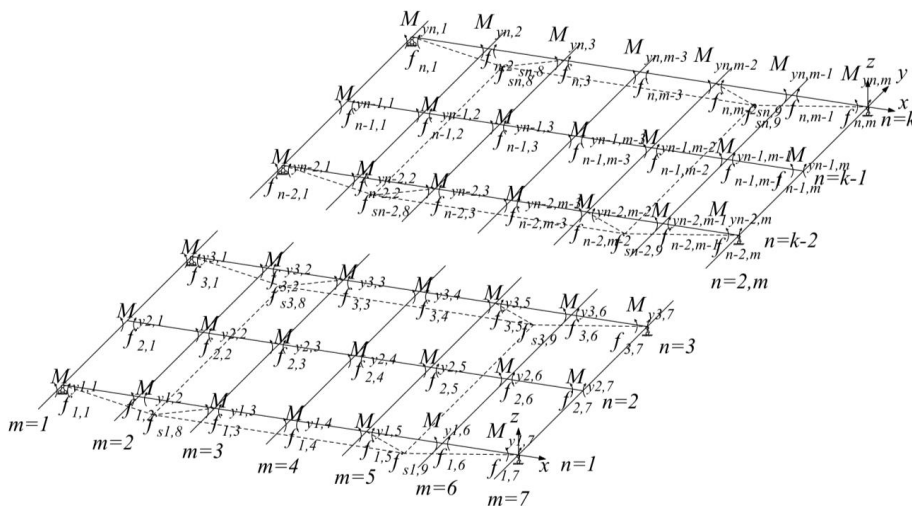 M yn,1 M yn,2 M yn,3 M yn,m-3 M yn,m-2 M yn,m-1 M yn,m z y
f n,1 f n,2 f sn,8 sn,8 f n,3 f n,m-3 f n,m-2 f sn,9 sn,9 f n,m-1 f n,m x n=k
M yn-1,1 M yn-1,2 M yn-1,3 M yn-1,m-3 M yn-1,m-2 M yn-1,m-1 M yn-1,m
f n-1,1 f n-1,2 f n-1,3 f n-1,m-3 f n-1,m-2 f n-1,m-1 f n-1,m n=k-1
M yn-2,1 M yn-2,2 M yn-2,3 M yn-2,m-3 M yn-2,m-2 M yn-2,m-1 M yn-2,m
f n-2,1 f n-2,2 sn-2,8 f n-2,3 f n-2,m-3 f n-2,m-2 sn-2,9 f n-2,m-1 f n-2,m n=k-2
n=2,m
M y3,1 M y3,2 M y3,3 M y3,4 M y3,5 M y3,6 M y3,7
f 3,1 f 3,2 f s3,8 f 3,3 f 3,4 f 3,5 f s3,9 f 3,6 f 3,7 n=3
M y2,1 M y2,2 M y2,3 M y2,4 M y2,5 M y2,6 M y2,7
f 2,1 f 2,2 f 2,3 f 2,4 f 2,5 f 2,6 f 2,7 n=2
M y1,1 M y1,2 M y1,3 M y1,4 M y1,5 M y1,6 M y1,7 z
f 1,1 f 1,2 f s1,8 f 1,3 f 1,4 f 1,5 f s1,9 f 1,6 f 1,7 x n=1
m=1 m=2 m=3 m=4 m=5 m=6 m=7